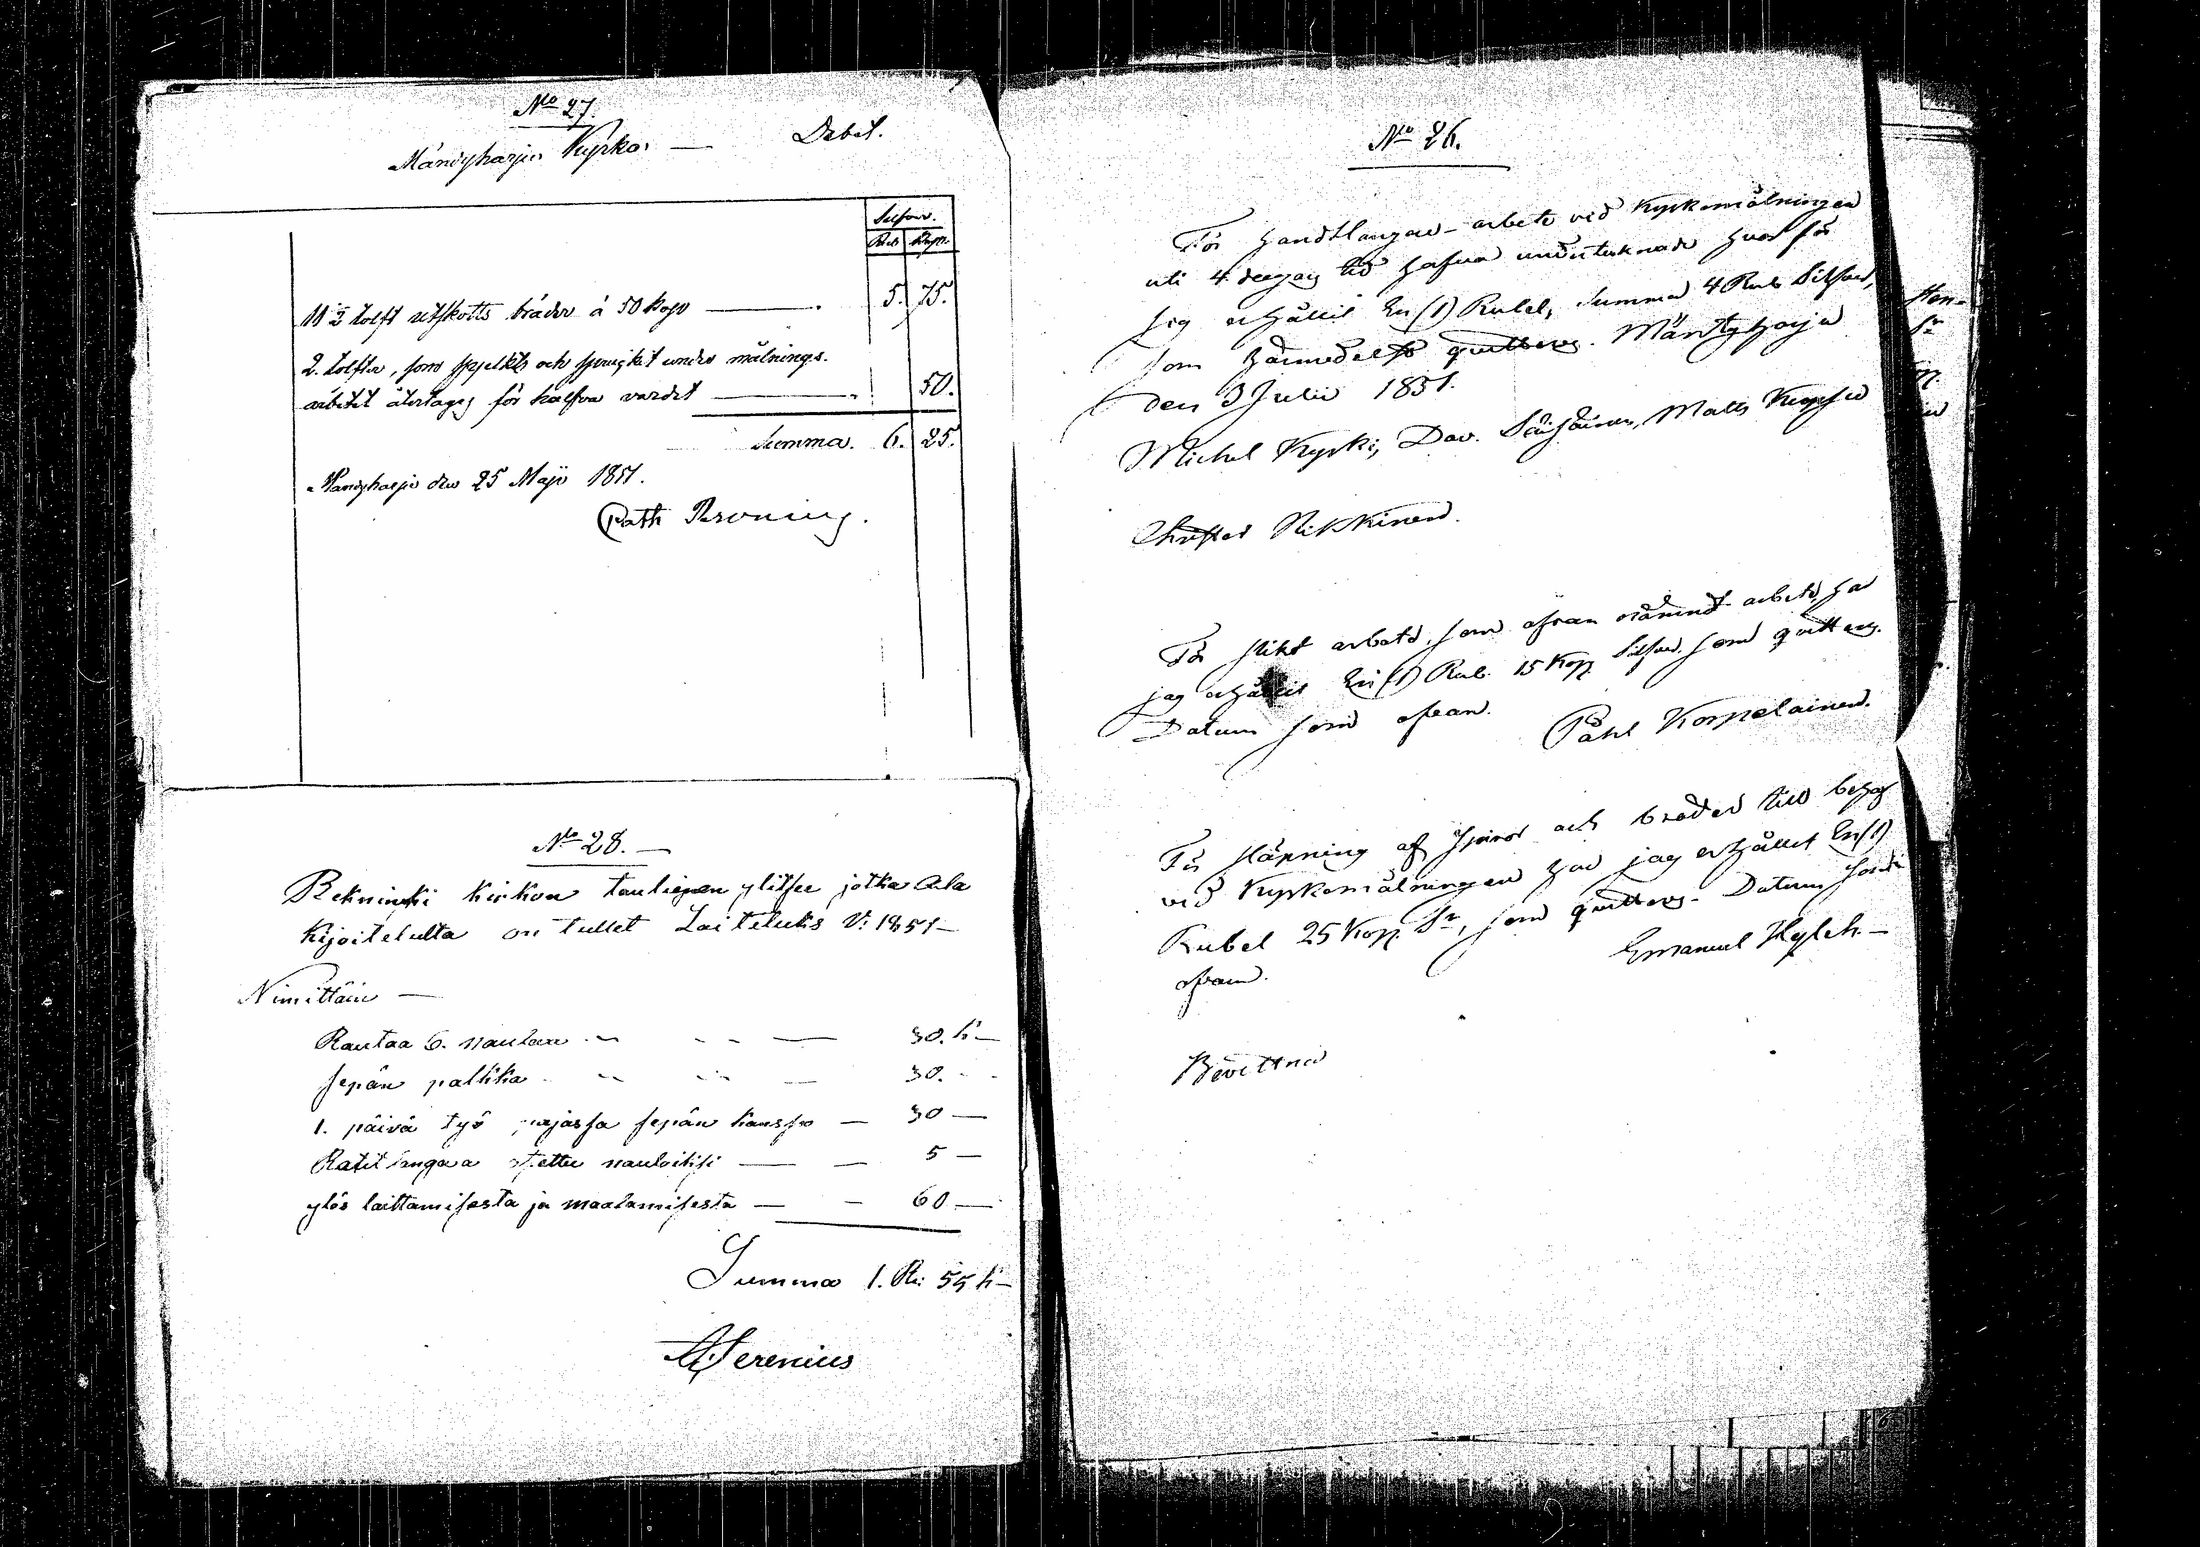 No 27.
Mändyharju Kyrka. — Debet.
Silfver.
Rub. Kop.
11 ½ tolft utskotts bräder á 50 Kop — 5. 75.
2. tolfter, som spjelkts och spruckit under målnings-
arbetet återtages för halfva värdet — 50.
Summa. 6. 25.
Mändyharju den 25 Maji 1851.
Cath Broning.
No 28. —
Rekninki kirkon ylitse jotka Ala
kijoitetulta on tullet Laitetuks V: 1851 —
Nimittäin —
Rautaa 6. naulaa — 30. k —
sepän palkka — 30.
1. päivä työ pajassa sepän kanssa — 30 —
nauloiksi — 5 —
ylös laittamisesta ja maalamisesta — 60 —
Summa 1. Ru: 55 k —
A Serenius
No 26.
För handtlangare-arbete vid Kyrkomålningen
uti 4 dagars tid hafva undertecknade hvar för
sig erhållit En (1) Rubel, Summa 4 Rub Silfver,
som härmedelst quitteras. Mäntyharju
den 3 Julii 1851.
Michel Kyrki, Dav. Matts
Christer Nikkinen.
För slikt arbete, som ofvan nämnt arbete, har
jag erhållit En (1) Rub. 15 Kop Silfver, som quitteras.
Datum som ofvan. Påhl Korpelainen.
För släpning af och bräder till behof
vid Kyrkomålningen har jag erhållit En (1)
Rubel 25 Kop. Sr, som quitteras. Datum som
ofvan. Emanuel —